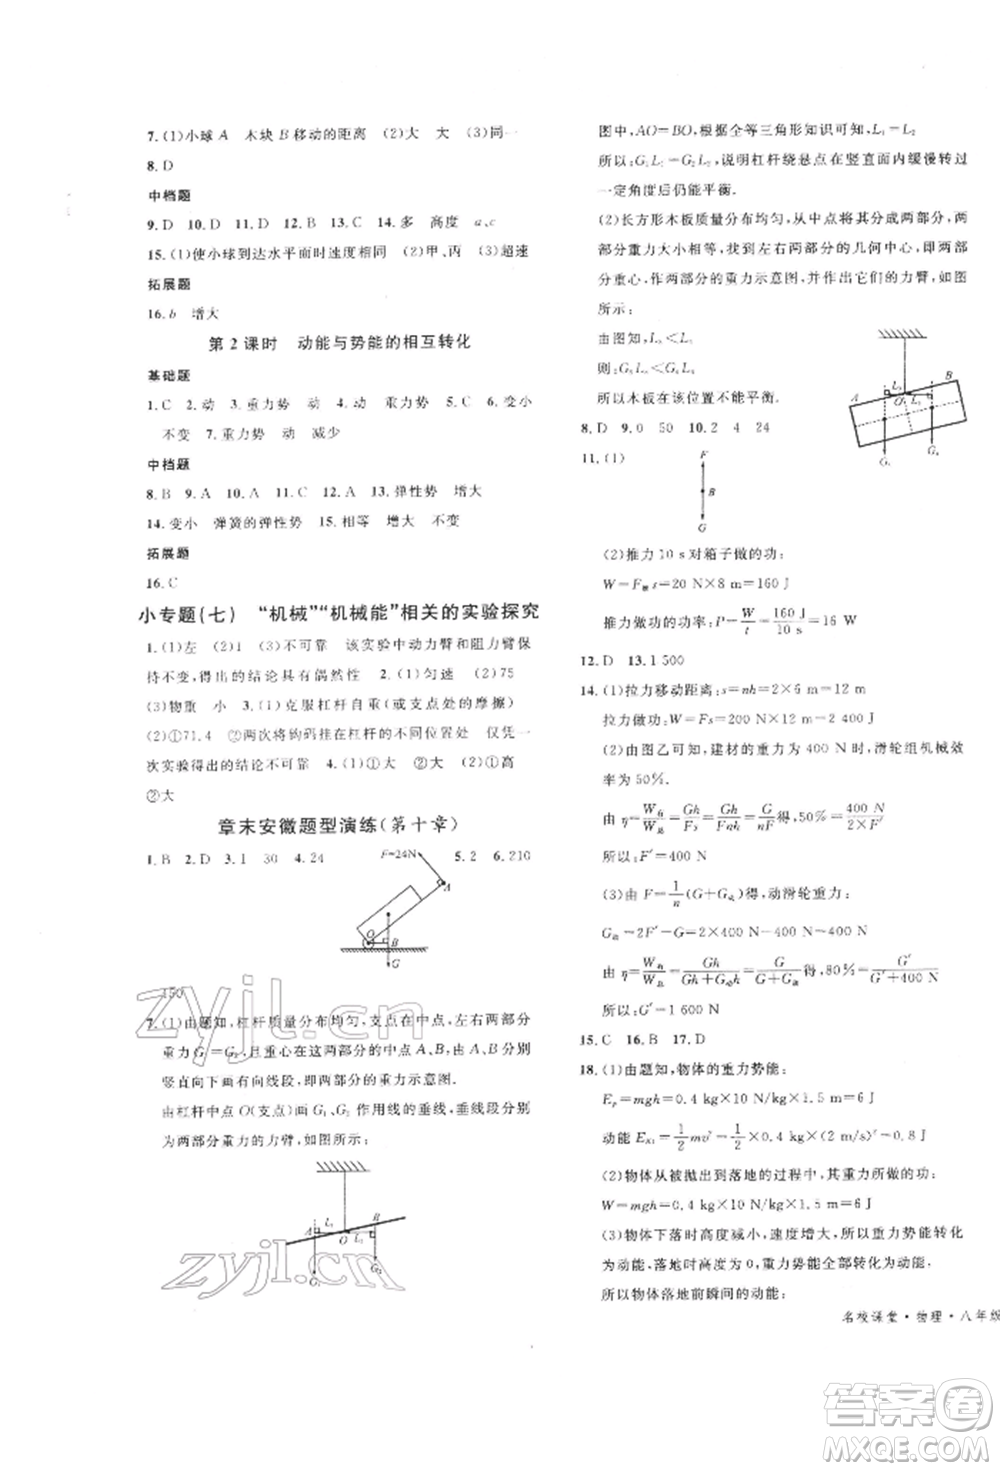 7. (1)小球 A 木块 B 移动的距离 (2)大 大 (3)同一
8. D
中档题
9. D 10. D 11. D 12. B 13. C 14. 多 高度 a、c
15. (1)使小球到达水平面时速度相同 (2)甲、丙 (3)超速
拓展题
16. b 增大
第 2 课时 动能与势能的相互转化
基础题
1. C 2. 动 3. 重力势 动 4. 动 重力势 5. C 6. 变小
不变 7. 重力势 动 减少
中档题
8. B 9. A 10. A 11. C 12. A 13. 弹性势 增大
14. 变小 弹簧的弹性势 15. 相等 增大 不变
拓展题
16. C
小专题(七) “机械”“机械能”相关的实验探究
1. (1)左 (2)1 (3)该实验中动力臂和阻力臂保
持不变,得出的结论具有偶然性 2. (1)匀速 (2)75
(3)物重 小 3. (1)克服杠杆自重(或支点处的摩擦)
(2)①71.4 ②两次将钩码挂在杠杆的不同位置处 仅凭一
次实验得出的结论不可靠 4. (1)①大 (2)①高
②大
章末安徽题型演练(第十章)
1. B 2. D 3. 1 30 4. 24 5. 2 6. 210
F=24N
A
O
B
G
150
7. (1)由题知,杠杆质量分布均匀,支点在中点,左右两部分
重力 G₁=G₂,且重心在这两部分的中点 A、B,由 A、B
竖直向下画有向线段,即两部分的重力示意图.
由杠杆中点 O(支点)画 G₁、G₂ 作用线的垂线,垂线段
为两部分重力的力臂,如图所示:
A L₁ B
O L₂
G₁
G₂
zyjl.cn
zyjl.cn
图中,AO=BO,根据全等三角形知识可知,L₁=L₂
所以:G₁L₁=G₂L₂,说明杠杆绕悬点在竖直面内缓慢转过
一定角度后仍能平衡.
(2)长方形木板质量分布均匀,从中点将其分成两部分,两
部分重力大小相等,找到左右两部分的几何中心,即两部
分重心,作两部分的重力示意图,并作出它们的力臂,如图
所示:
由图知,L₃<L₄
则:G₃L₃<G₄L₄
所以木板在该位置不能平衡.
A L₃ B
O L₄
G₃
G₄
8. D 9. 0 50 10. 2 4 24
11. (1)
F
B
G
(2)推力 10 s 对箱子做的功:
W=F推s=20 N×8 m=160 J
推力做功的功率:P=W/t=160 J/10 s=16 W
12. D 13. 1 500
14. (1)拉力移动距离:s=nh=2×6 m=12 m
拉力做功:W=Fs=200 N×12 m=2 400 J
(2)由图乙可知,建材的重力为 400 N 时,滑轮组机械效
率为 50%.
由 η=W有/W总=Gh/Fs=Gh/Fnh=G/nF得:50%=400 N/2×F′
所以:F′=400 N
(3)由 F=1/n(G+G动)得,动滑轮重力:
G动=2F′−G=2×400 N−400 N=400 N
由 η=W有/W总=Gh/Gh+G动h=G/G+G动得,80%=G′/G′+400 N
所以:G′=1 600 N
15. C 16. B 17. D
18. (1)由题知,物体的重力势能:
Eₚ=mgh=0.4 kg×10 N/kg×1.5 m=6 J
动能 EK1=1/2mv²=1/2×0.4 kg×(2 m/s)²=0.8 J
(2)物体从被抛出到落地的过程中,其重力所做的功:
W=mgh=0.4 kg×10 N/kg×1.5 m=6 J
(3)物体下落时高度减小,速度增大,所以重力势能转化
为动能.落地时高度为 0,重力势能全部转化为动能.
所以物体落地前瞬间的动能:
名校课堂·物理·八年级
答案圈
MXQE.COM